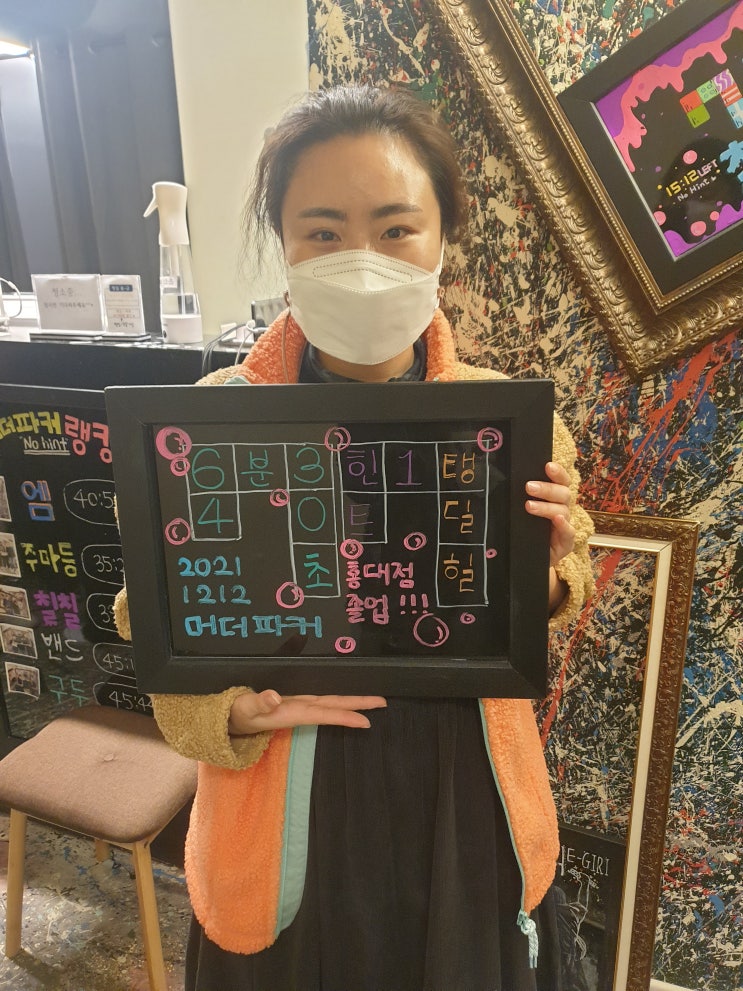 15:12 LEFT
No Hint
더파커 랭킹
No hint
엠
주마등
칠칠
밴드
구두
6 분 3 힌 1 탱
4 0 트 딜
초 힐
2021
1212
머더파커
홍대점
졸업!!!
E-GIRI